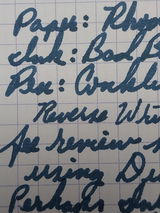 Paper: Rho
Ink: Bad B
Pen: Conkli
Reverse Wri
for review
using Di
Perhaps In